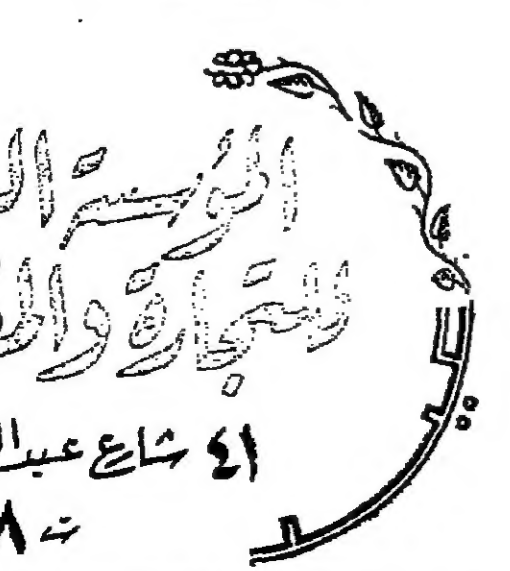 المؤسسة ال
للتجارة وال
٤١ شارع عبدال
ت ٨